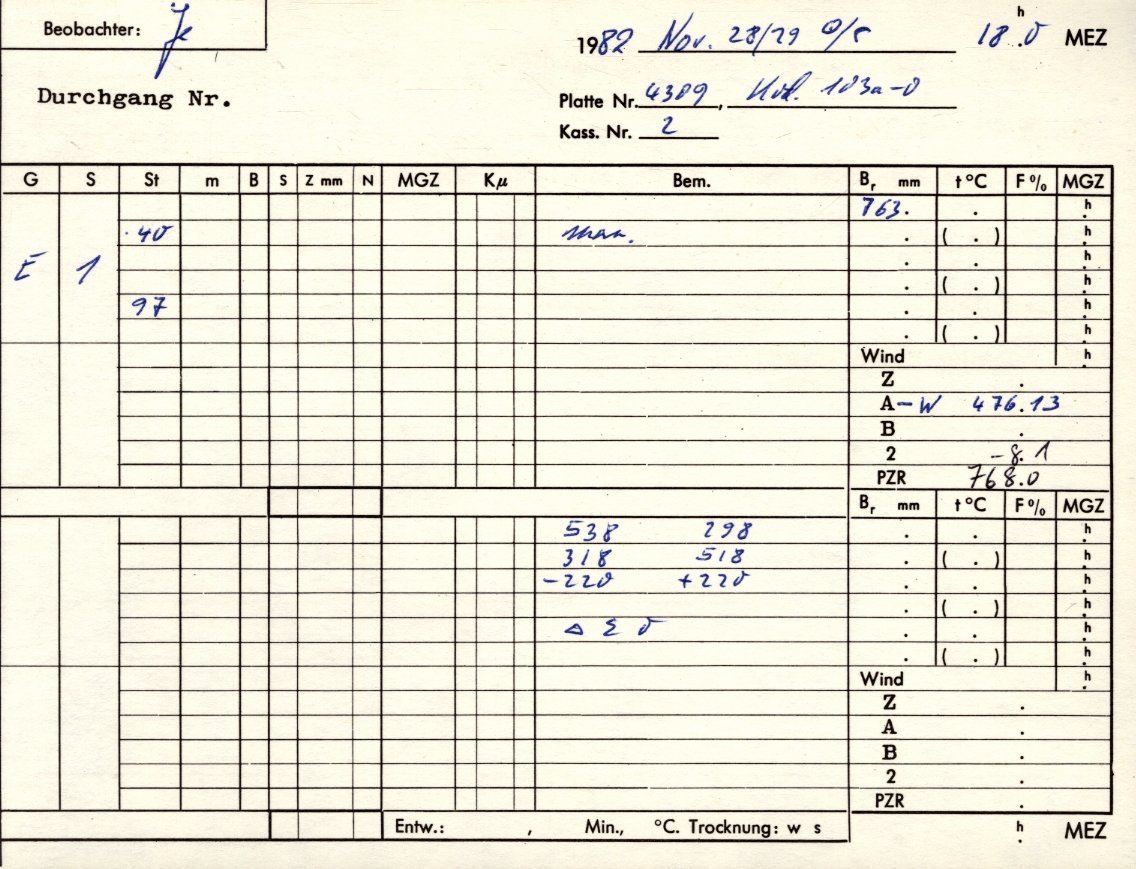 Beobachter: Je
1982 Nov. 28/29 18 h .0 MEZ
Durchgang Nr.
Platte Nr. 4389, 103a-0
Kass. Nr. 2
G S St m B S Z mm N MGZ Kμ Bem. Br mm t °C F % MGZ
763. . h
40 . ( . ) h
E 1 . . h
. ( . ) h
97 . . h
. ( . ) h
Wind h
Z .
A – W 476.13
B .
2 -8.1
PZR 768.0
Br mm t °C F % MGZ
538 298 . . h
318 518 . ( . ) h
-220 +220 . . h
. ( . ) h
Δ Σ 0 . . h
. ( . ) h
Wind h
Z .
A .
B .
2 .
PZR .
Entw.: , Min., °C. Trocknung: w s h . MEZ